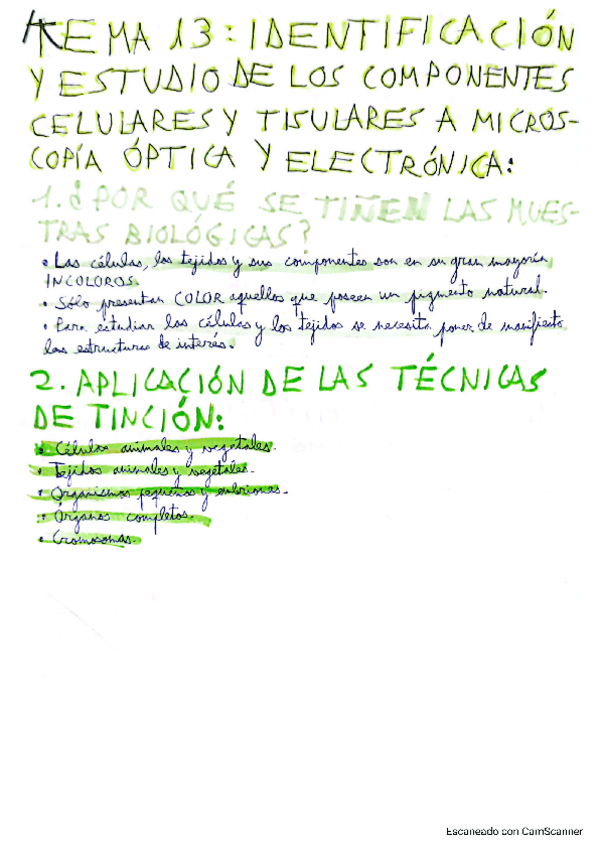 TEMA 13: IDENTIFICACIÓN
Y ESTUDIO DE LOS COMPONENTES
CELULARES Y TISULARES A MICROS-
COPÍA ÓPTICA Y ELECTRÓNICA:
1. ¿POR QUÉ SE TIÑEN LAS MUES-
TRAS BIOLÓGICAS?
• Las células, los tejidos y sus componentes son en su gran mayoría
INCOLOROS.
• Sólo presentan COLOR aquellos que poseen un pigmento natural.
• Para estudiar las células y los tejidos se necesita poner de manifiesto
las estructuras de interés.
2. APLICACIÓN DE LAS TÉCNICAS
DE TINCIÓN:
• Células animales y vegetales.
• Tejidos animales y vegetales.
• Organismos pequeños y embriones.
• Órganos completos.
• Cromosomas.
Escaneado con CamScanner